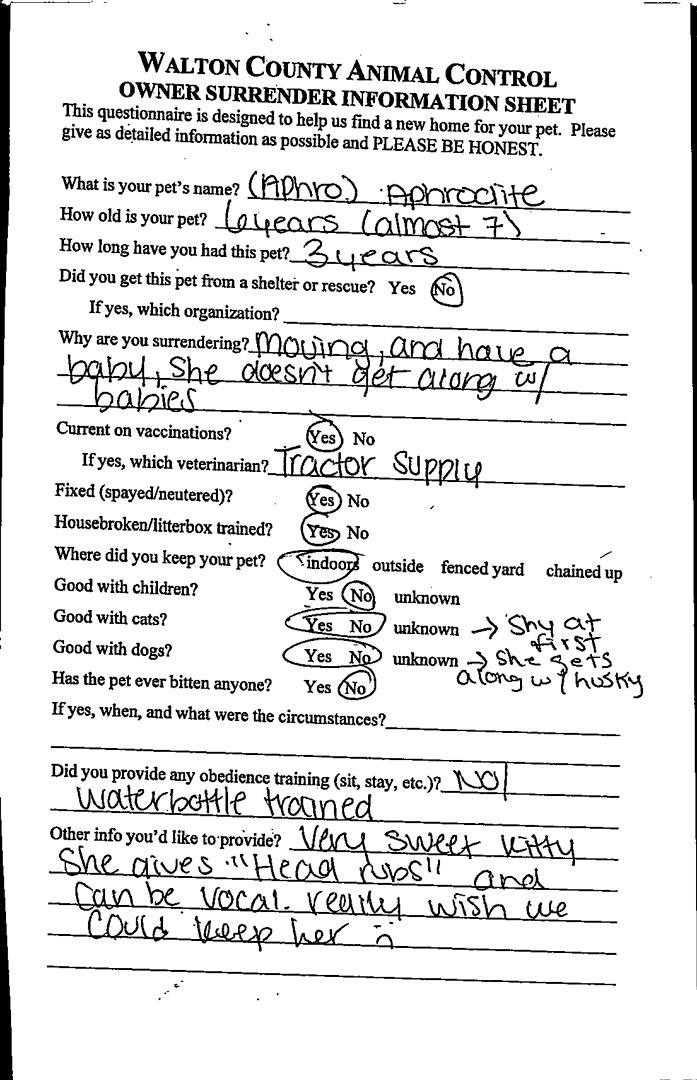 WALTON COUNTY ANIMAL CONTROL
OWNER SURRENDER INFORMATION SHEET
This questionnaire is designed to help us find a new home for your pet. Please
give as detailed information as possible and PLEASE BE HONEST.
What is your pet's name? (Aphro) Aphrodite
How old is your pet? 6 years (almost 7)
How long have you had this pet? 3 years
Did you get this pet from a shelter or rescue? Yes No
If yes, which organization?
Why are you surrendering? moving, and have a
baby, She doesn't get along w/
babies
Current on vaccinations? Yes No
If yes, which veterinarian? Tractor Supply
Fixed (spayed/neutered)? Yes No
Housebroken/litterbox trained? Yes No
Where did you keep your pet? indoors outside fenced yard chained up
Good with children? Yes No unknown
Good with cats? Yes No unknown → Shy at
first
Good with dogs? Yes No unknown → She gets
along w/ husky
Has the pet ever bitten anyone? Yes No
If yes, when, and what were the circumstances?
Did you provide any obedience training (sit, stay, etc.)? NO
Waterbottle trained
Other info you'd like to provide? Very sweet kitty
She gives "Head rubs" and
Can be vocal. really wish we
could keep her :(